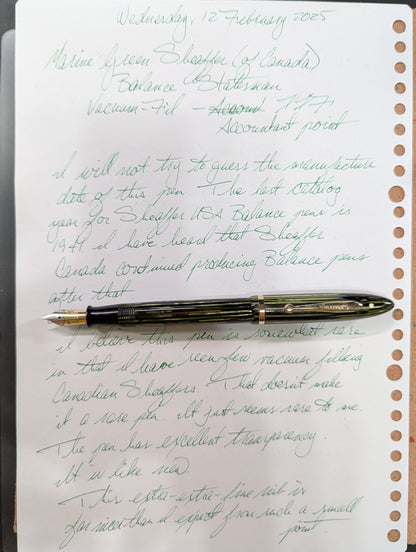 Wednesday, 12 February 2025
Marine Green Sheaffer (of Canada)
Balance Statesman
Vacuum-Fil - Account XXF
Accountant point
I will not try to guess the manufacture
date of this pen. The last catalog
year for Sheaffer USA Balance pens is
1941. I have heard that Sheaffer
Canada continued producing Balance pens
after that
I believe this pen is somewhat rare
in that I have seen few vacuum filling
Canadian Sheaffers. That doesn't make
it a rare pen. It just seems rare to me.
The pen has excellent transparency.
It is like new.
This extra-extra-fine nib is
far nicer than I expect from such a small
point.